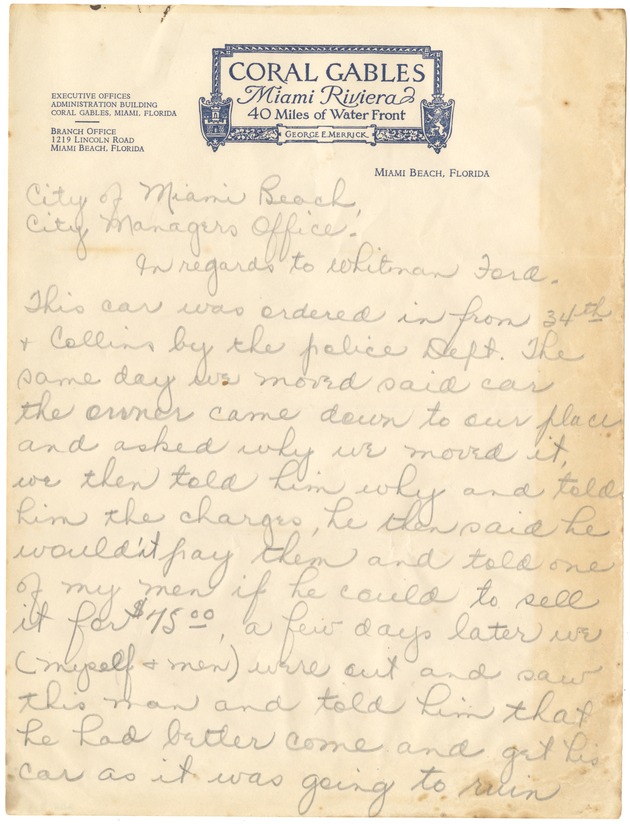 EXECUTIVE OFFICES
ADMINISTRATION BUILDING
CORAL GABLES, MIAMI, FLORIDA
BRANCH OFFICE
1219 LINCOLN ROAD
MIAMI BEACH, FLORIDA
CORAL GABLES
Miami Riviera
40 Miles of Water Front
GEORGE E. MERRICK
MIAMI BEACH, FLORIDA
City of Miami Beach,
City Managers Office.
In regards to Whitman Ford.
This car was ordered in from 34th
& Collins by the police Dept. The
same day we moved said car
the owner came down to our place
and asked why we moved it,
we then told him why and told
him the charges, he then said he
would'nt pay them and told one
of my men if he could to sell
it for $75.00, a few days later we
(myself & men) were out and saw
this man and told him that
he had better come and get his
car as it was going to ruin